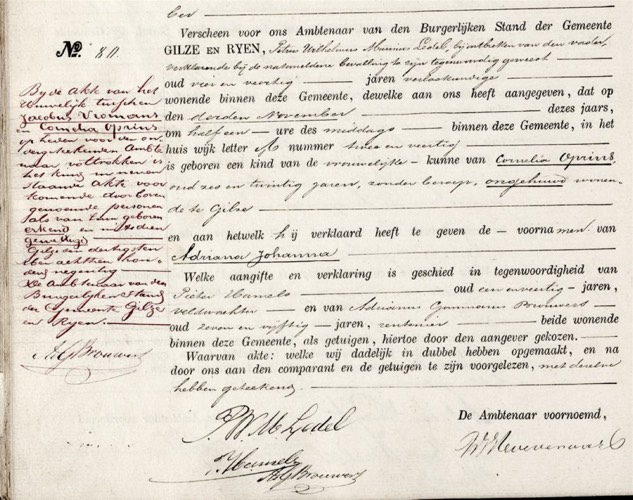 ber
Verscheen voor ons Ambtenaar van den Burgerlijken Stand der Gemeente
GILZE EN RYEN, Petrus Wilhelmus Marinus Ledel, bij ontbreken van den vader,
verklarende bij de natemeldene bevalling te zijn tegenwoordig geweest
oud vier en veertig jaren verloskundige
wonende binnen deze Gemeente, dewelke aan ons heeft aangegeven, dat op
den derden November dezes jaars,
om half een ure des middags binnen deze Gemeente, in het
huis wijk letter A nummer twee en veertig
is geboren een kind van de vrouwelijke kunne van Cornelia Oprins
oud zes en twintig jaren, zonder beroep, ongehuwd wonen-
de te Gilze
en aan hetwelk hij verklaard heeft te geven de voornamen van
Adriana Johanna
Welke aangifte en verklaring is geschied in tegenwoordigheid van
Pieter Hamels oud een en veertig jaren,
veldwachter en van Adrianus Brouwers
oud zeven en vijftig jaren, rentenier beide wonende
binnen deze Gemeente, als getuigen, hiertoe door den aangever gekozen.
Waarvan akte: welke wij dadelijk in dubbel hebben opgemaakt, en na
door ons aan den comparant en de getuigen te zijn voorgelezen, met dezelve
hebben geteekend.
De Ambtenaar voornoemd,
P.W.M. Ledel
P. Hamels
A.G. Brouwers
No. 80.
By de akte van het
huwelijk tusschen
Jacobus Vromans
en Cornelia Oprins
op heden voor den on-
dergeteekenden Ambte-
naar voltrokken is
het kind in neven
staande akte voor
komende door boven
genoemde personen
als van hun geboren
erkend en mitsdien
gewettigd
Gilze en dertigsten
achttien hon-
derd negentig
De Ambtenaar van den
Burgerlijken Stand
der Gemeente Gilze
en Ryen.
A.G. Brouwers